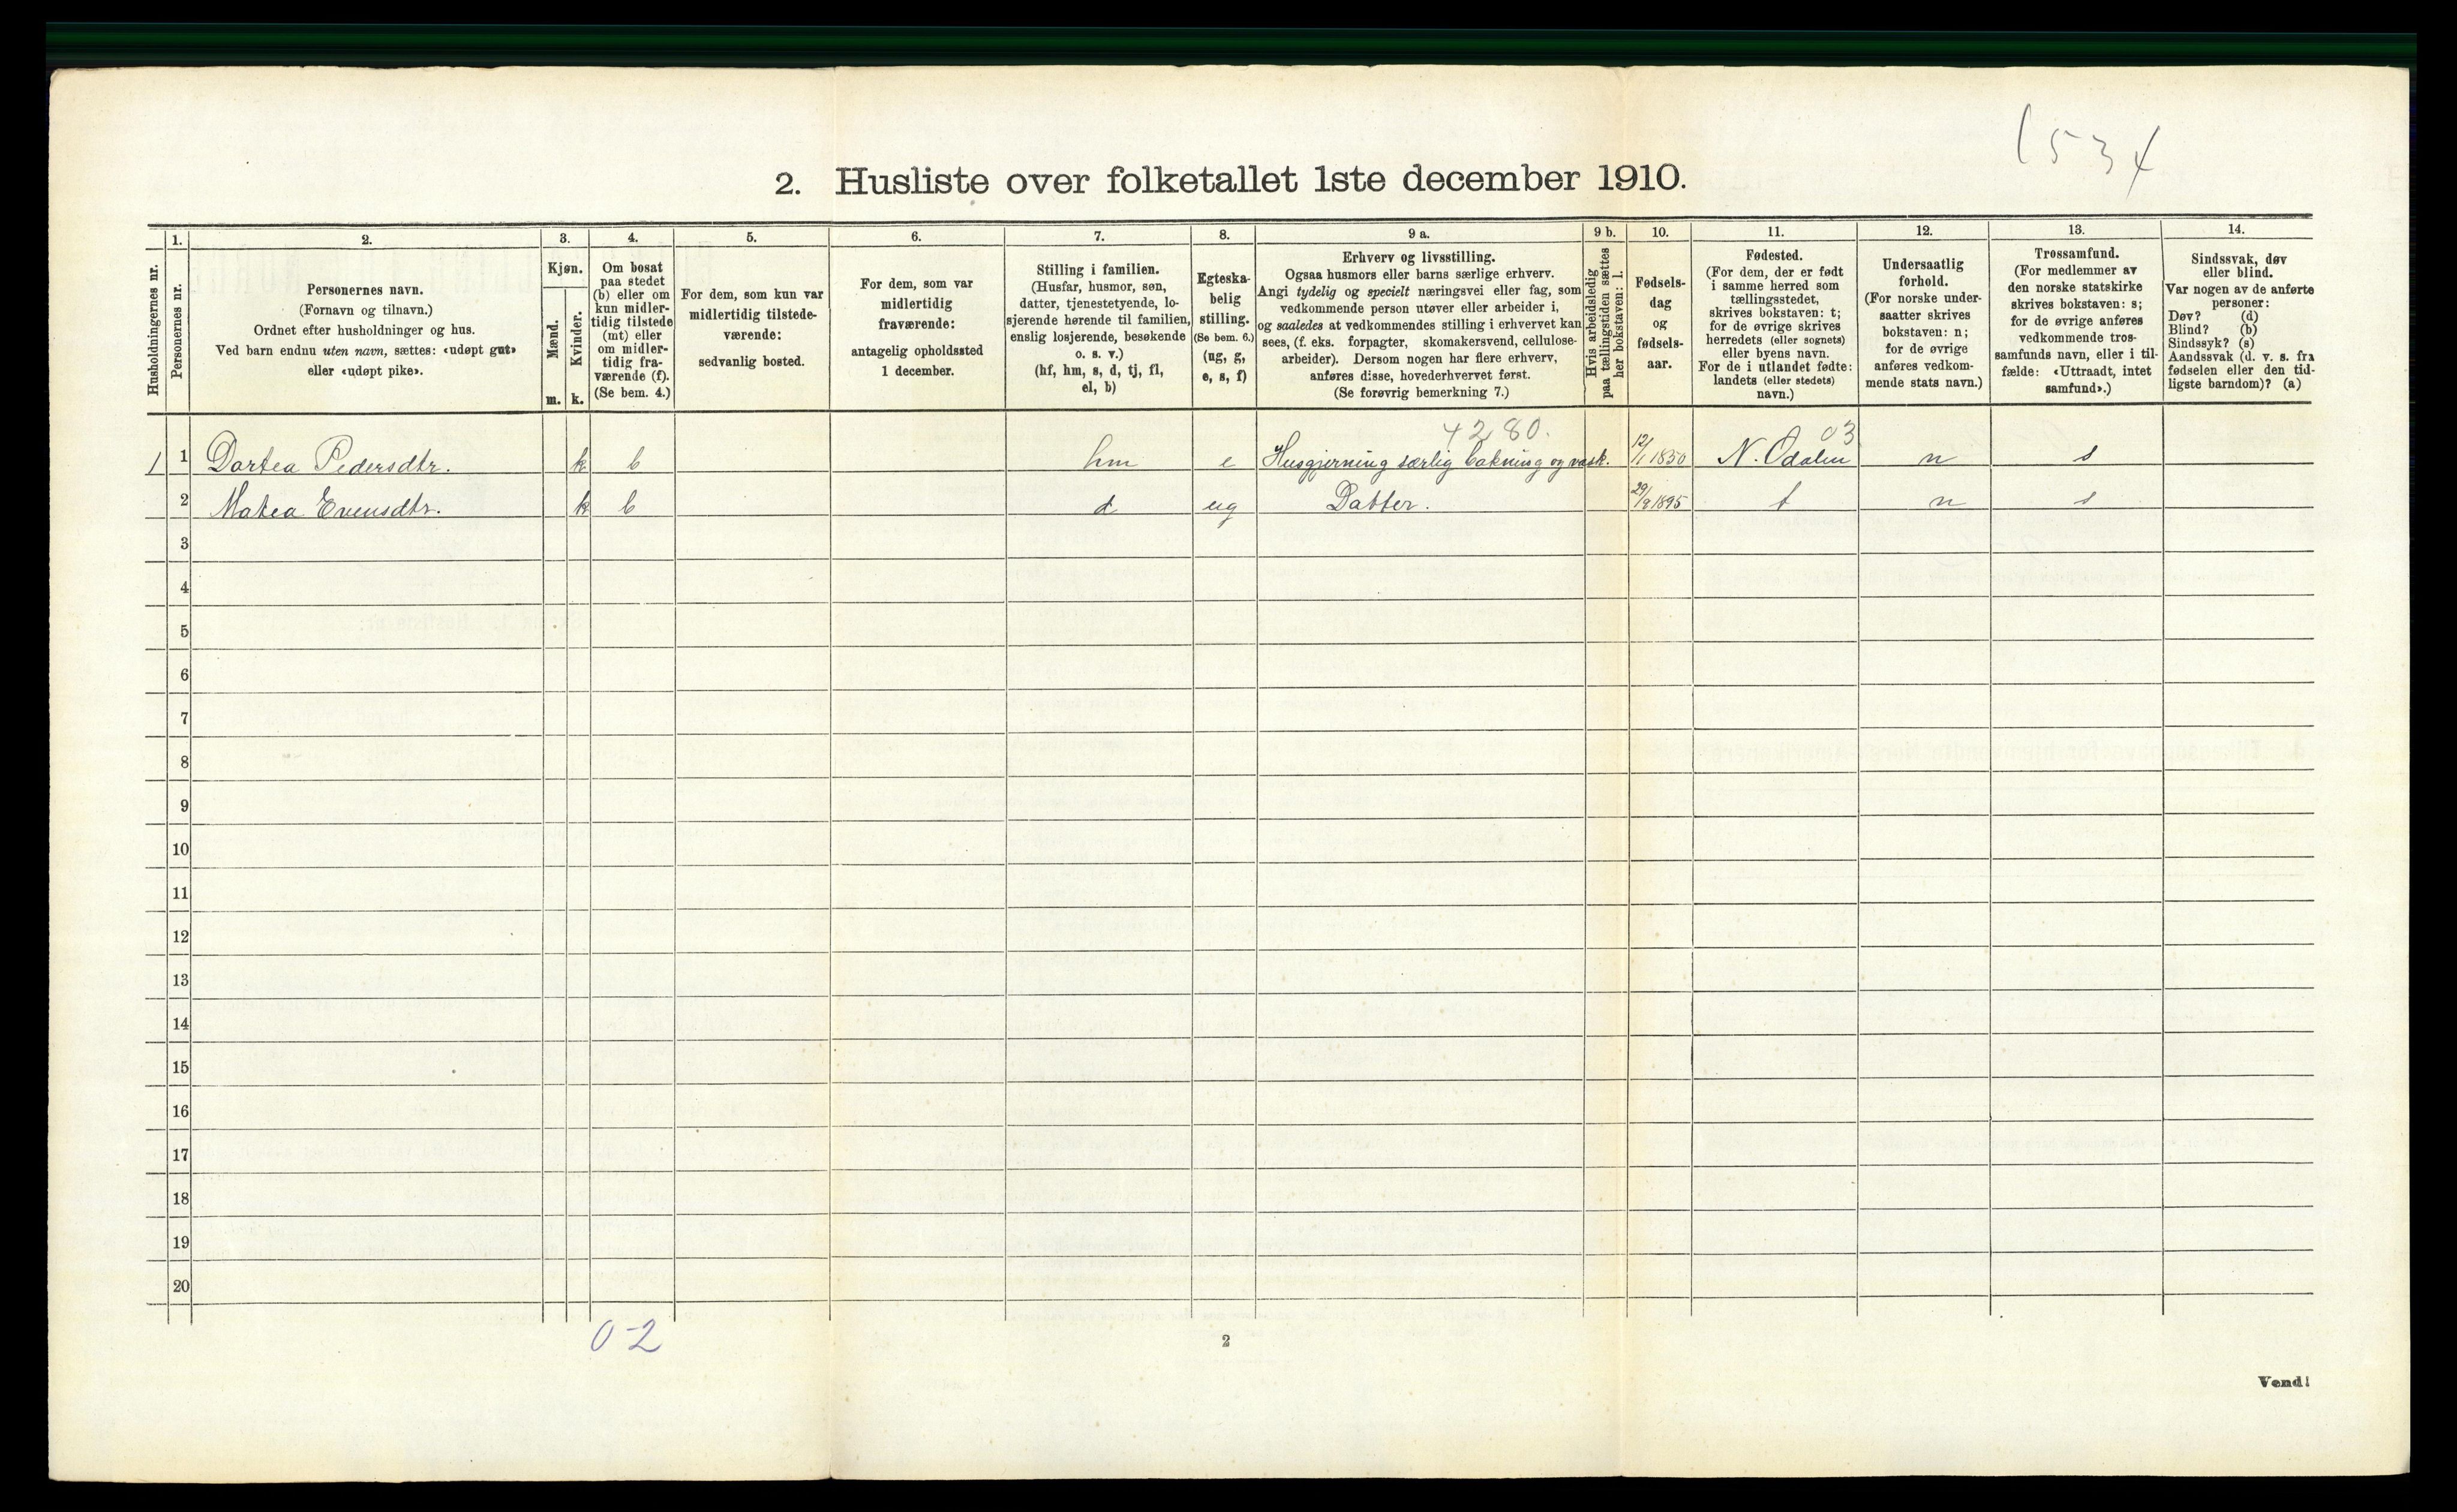 1534
2. Husliste over folketallet 1ste december 1910.
Husholdningernes nr.
1.
Personernes nr.
2.
Personernes navn.
(Fornavn og tilnavn.)
Ordnet efter husholdninger og hus.
Ved barn endnu uten navn, sættes: «udøpt gut»
eller «udøpt pike».
3.
Kjøn.
Mænd.
Kvinder.
m.
k.
4.
Om bosat
paa stedet
(b) eller om
kun midler-
tidig tilstede
(mt) eller
om midler-
tidig fra-
værende (f).
(Se bem. 4.)
5.
For dem, som kun var
midlertidig tilstede-
værende:
sedvanlig bosted.
6.
For dem, som var
midlertidig
fraværende:
antagelig opholdssted
1 december.
7.
Stilling i familien.
(Husfar, husmor, søn,
datter, tjenestetyende, lo-
sjerende hørende til familien,
enslig losjerende, besøkende
o. s. v.)
(hf, hm, s, d, tj, fl,
el, b)
8.
Egteska-
belig
stilling.
(Se bem. 6.)
(ug, g,
e, s, f)
9 a.
Erhverv og livsstilling.
Ogsaa husmors eller barns særlige erhverv.
Angi tydelig og specielt næringsvei eller fag, som
vedkommende person utøver eller arbeider i,
og saaledes at vedkommendes stilling i erhvervet kan
sees, (f. eks. forpagter, skomakersvend, cellulose-
arbeider). Dersom nogen har flere erhverv,
anføres disse, hovederhvervet først.
(Se forøvrig bemerkning 7.)
9 b.
Hvis arbeidsledig
paa tællingstiden sættes
her bokstaven: l.
10.
Fødsels-
dag
og
fødsels-
aar.
11.
Fødested.
(For dem, der er født
i samme herred som
tællingsstedet,
skrives bokstaven: t;
for de øvrige skrives
herredets (eller sognets)
eller byens navn.
For de i utlandet fødte:
landets (eller stedets)
navn.)
12.
Undersaatlig
forhold.
(For norske under-
saatter skrives
bokstaven: n;
for de øvrige
anføres vedkom-
mende stats navn.)
13.
Trossamfund.
(For medlemmer av
den norske statskirke
skrives bokstaven: s;
for de øvrige anføres
vedkommende tros-
samfunds navn, eller i til-
fælde: «Uttraadt, intet
samfund».)
14.
Sindssvak, døv
eller blind.
Var nogen av de anførte
personer:
Døv? (d)
Blind? (b)
Sindssyk? (s)
Aandssvak (d. v. s. fra
fødselen eller den tid-
ligste barndom)? (a)
4280. 03
1 1 Dortea Pedersdtr. k b hm e Husgjerning særlig bakning og vask. 12/1 1850 N. Odalen n s
2 Matea Evensdtr. k b d ug Datter. 29/8 1895 t n s
3
4
5
6
7
8
9
10
11
12
13
14
15
16
17
18
19
20
0-2
2
Vend!